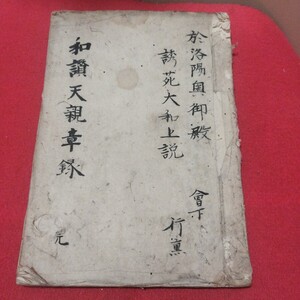 於洛陽興御殿 會下
講苑大和上説 行薫
和讃天親章録 完